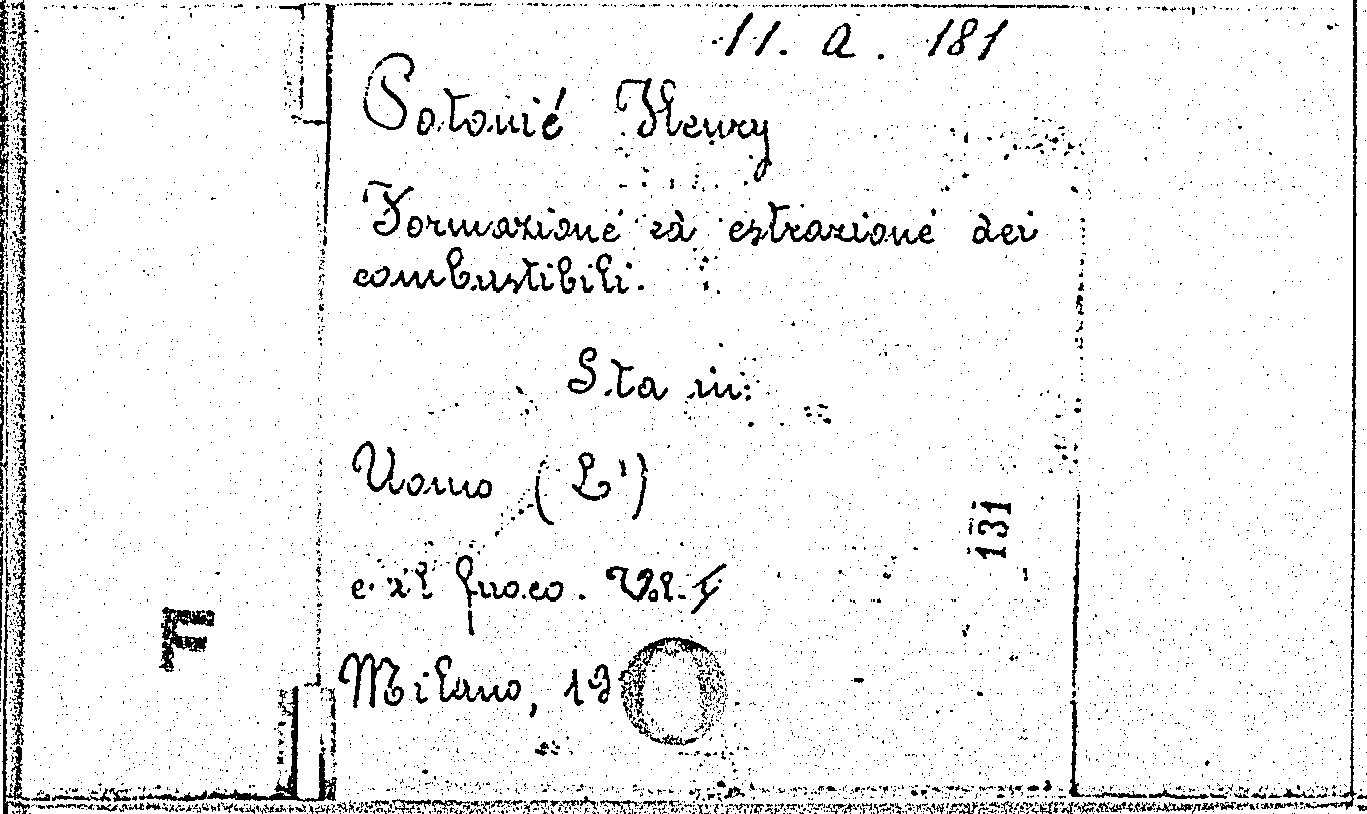 11. a. 181
Potonié Henry
Formazione ed estrazione dei
combustibili.
Sta in:
Uomo (L')
e il fuoco. Vol. I
Milano, 19
131
F